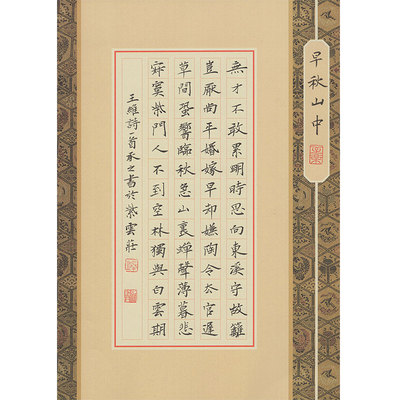 早秋山中
無才不敢累明時思向東溪守故籬
豈厭尚平婚嫁早却嫌陶令去官遲
草間蛩響臨秋急山裏蟬聲薄暮悲
寂寞柴門人不到空林獨與白雲期
王維詩一首承之書於紫雲莊